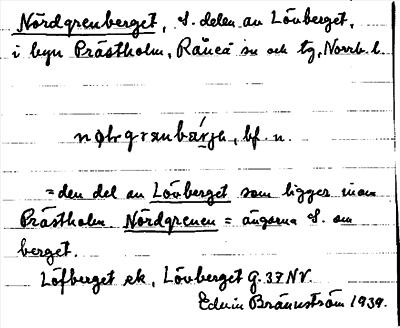 Nördgrenberget, S. delen av Lövberget,
i byn Prästholm, Råneå sn och tg, Norrb. l.
bf. n.
= den del av Lövberget som ligger inom
Prästholm Nördgrenen = ängarna S. om
berget.
Löfberget ek, Lövberget G. 37 NV.
Edvin Brännström 1939.